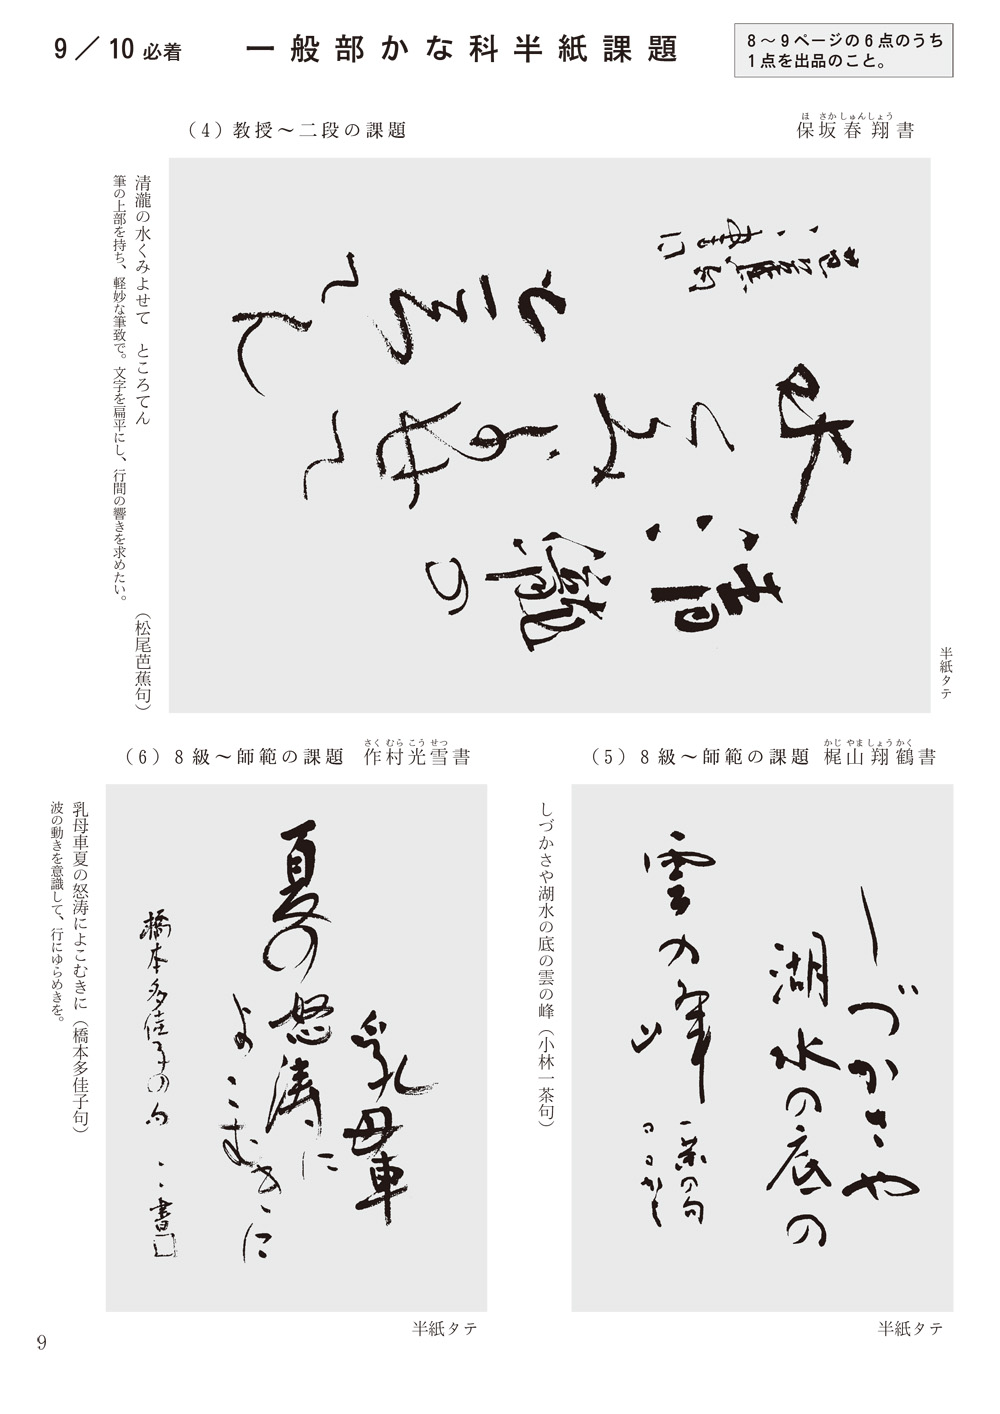 9／10必着
一般部かな科半紙課題
8～9ページの6点のうち
1点を出品のこと。
（4）教授～二段の課題
ほ さか しゅんしょう
保坂春翔書
清瀧の水くみよせて ところてん
（松尾芭蕉句）
筆の上部を持ち、軽妙な筆致で。文字を扁平にし、行間の響きを求めたい。
清
瀧の
水くみ
よせて
ところ
てん
芭蕉句
書
半紙タテ
（5）8級～師範の課題
かじ やま しょう かく
梶山翔鶴書
しづかさや
湖水の底の
雲の峰
一茶の句
かく
しづかさや湖水の底の雲の峰（小林一茶句）
半紙タテ
（6）8級～師範の課題
さく むら こう せつ
作村光雪書
乳母車
夏の怒涛に
よこむきに
橋本多佳子の句
書
乳母車夏の怒涛によこむきに（橋本多佳子句）
波の動きを意識して、行にゆらめきを。
半紙タテ
9